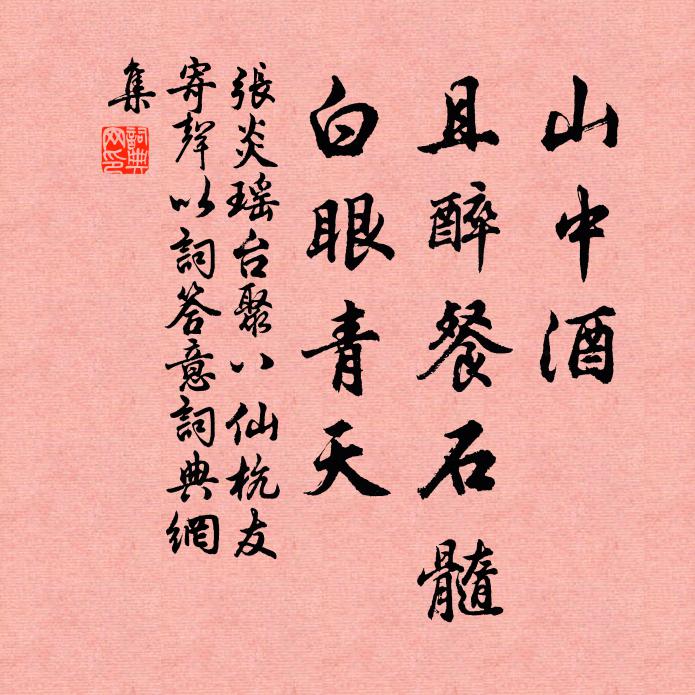 山中酒
且醉餐石髓
白眼青天
張炎瑶台聚八仙杭友
寄聲以詞答意詞典網
集
詞典網印